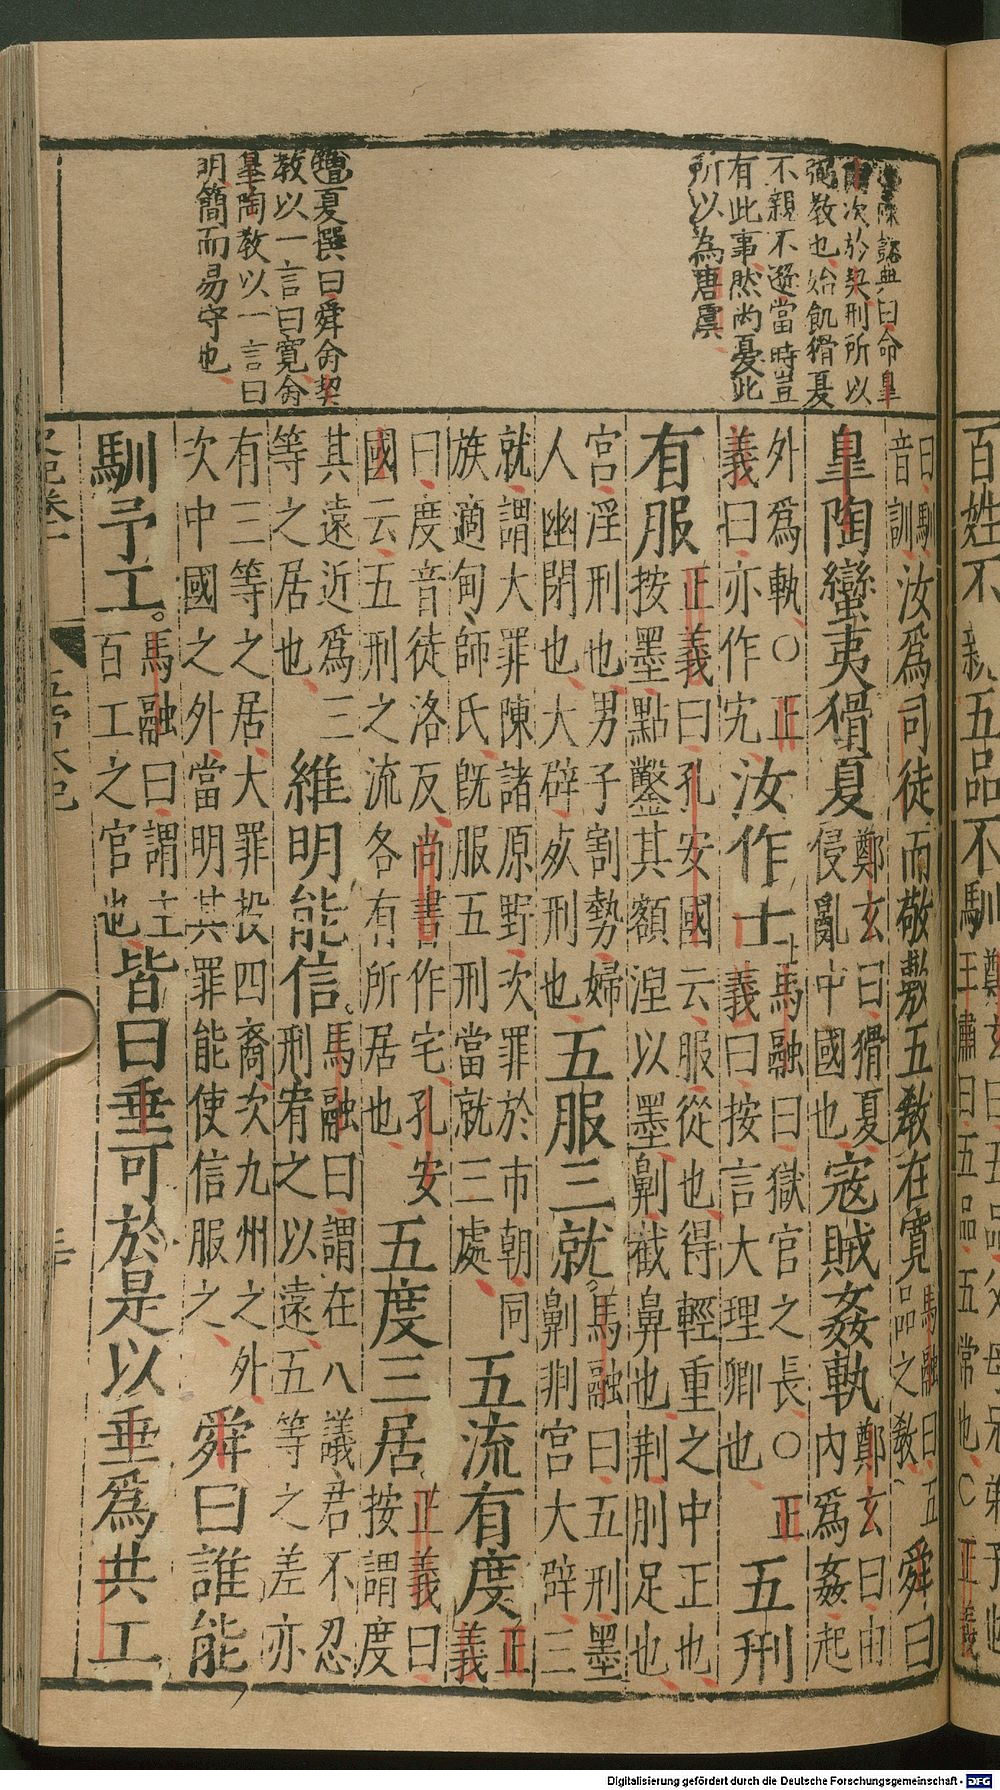 陳諮典曰命皋
次於契刑所以
弼敎也始飢猾夏
不親不遜當時豈
有此事然尚憂此
所以為唐虞
夏僎曰舜命契
敎以一言曰寬命
皋陶敎以一言曰
明簡而易守也
百姓不親五品不馴
王肅曰五品五常也
曰馴
音訓
汝爲司徒而敬敷五敎在寬
馬融曰五
品之敎
舜曰
皋陶蠻夷猾夏
鄭玄曰猾夏
侵亂中國也
寇賊姦軌
鄭玄曰由
內爲姦起
外爲軌○正
義曰亦作宄
汝作士
馬融曰獄官之長○正
義曰按言大理卿也
五刑
有服
正義曰孔安國云服從也得輕重之中正也
按墨點鑿其額涅以墨劓截鼻也剕刖足也
宮淫刑也男子割勢婦
人幽閉也大辟死刑也
五服三就
馬融曰五刑墨
劓剕宮大辟三
就謂大罪陳諸原野次罪於市朝同
族適甸師氏旣服五刑當就三處
五流有度
正
義
曰度音徒洛反尚書作宅孔安
國云五刑之流各有所居也
五度三居
正義曰
按謂度
其遠近爲三
等之居也
維明能信
馬融曰謂在八議君不忍
刑宥之以遠五等之差亦
有三等之居大罪投四裔次九州之外
次中國之外當明其罪能使信服之
舜曰誰能
馴予工
馬融曰謂主
百工之官也
皆曰垂可於是以垂爲共工
Digitalisierung gefördert durch die Deutsche Forschungsgemeinschaft - DFG